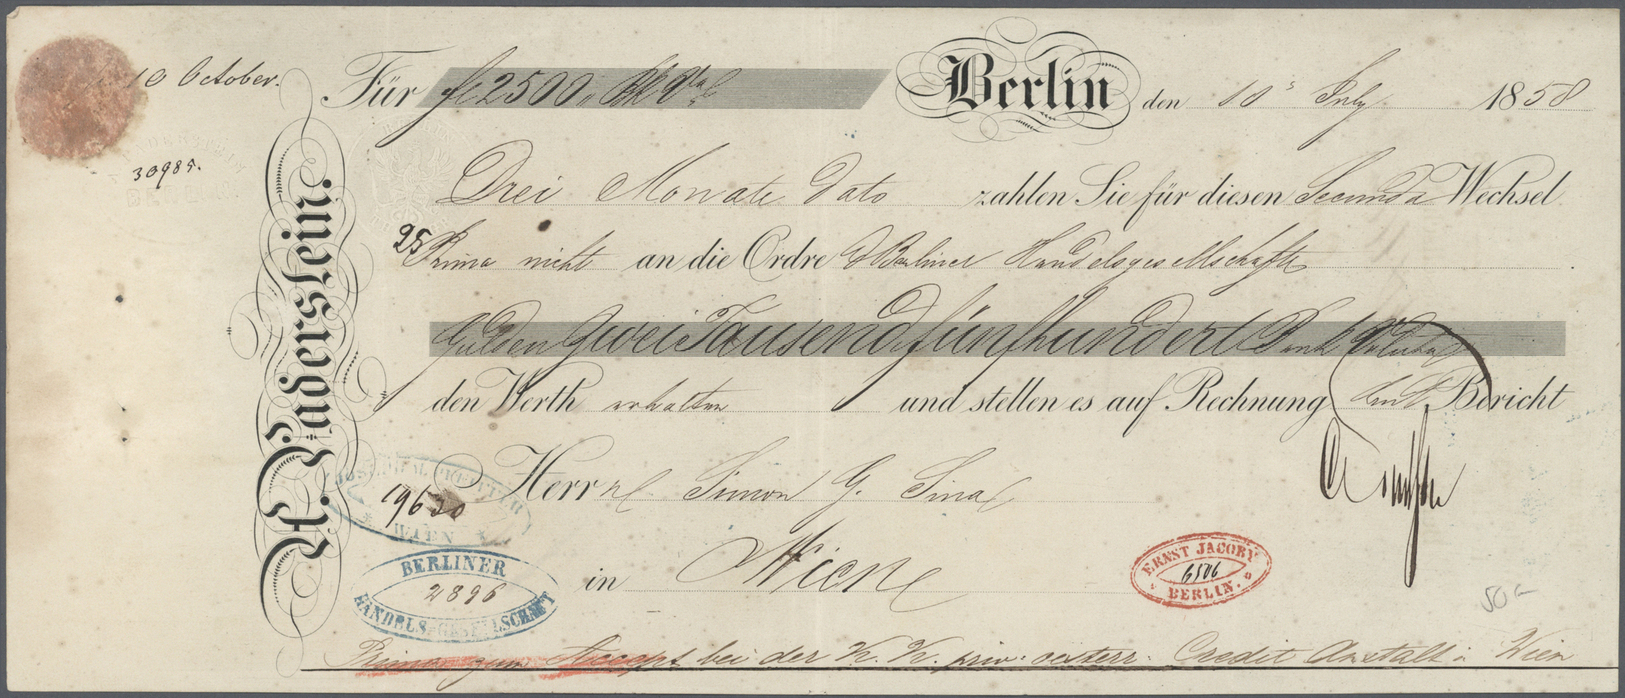 10 October.
Für fl 2500,, BkVal
Berlin den 10 July 1858
30985.
A. Paderstein.
Drei Monate dato zahlen Sie für diesen Secunda Wechsel
25
Prima nicht an die Ordre d Berliner Handelsgesellschaft
Gulden Zwei Tausend fünfhundert Bank Valuta
den Werth erhalten und stellen es auf Rechnung laut Bericht
Herrn Simon G. Sina
19630
WIEN
in Wien
BERLINER
2896
HANDELS-GESELLSCHAFT
ERNST JACOBY
6506
BERLIN.
50
Prima zum Accept bei der K. K. priv. oesterr. Credit Anstalt in Wien